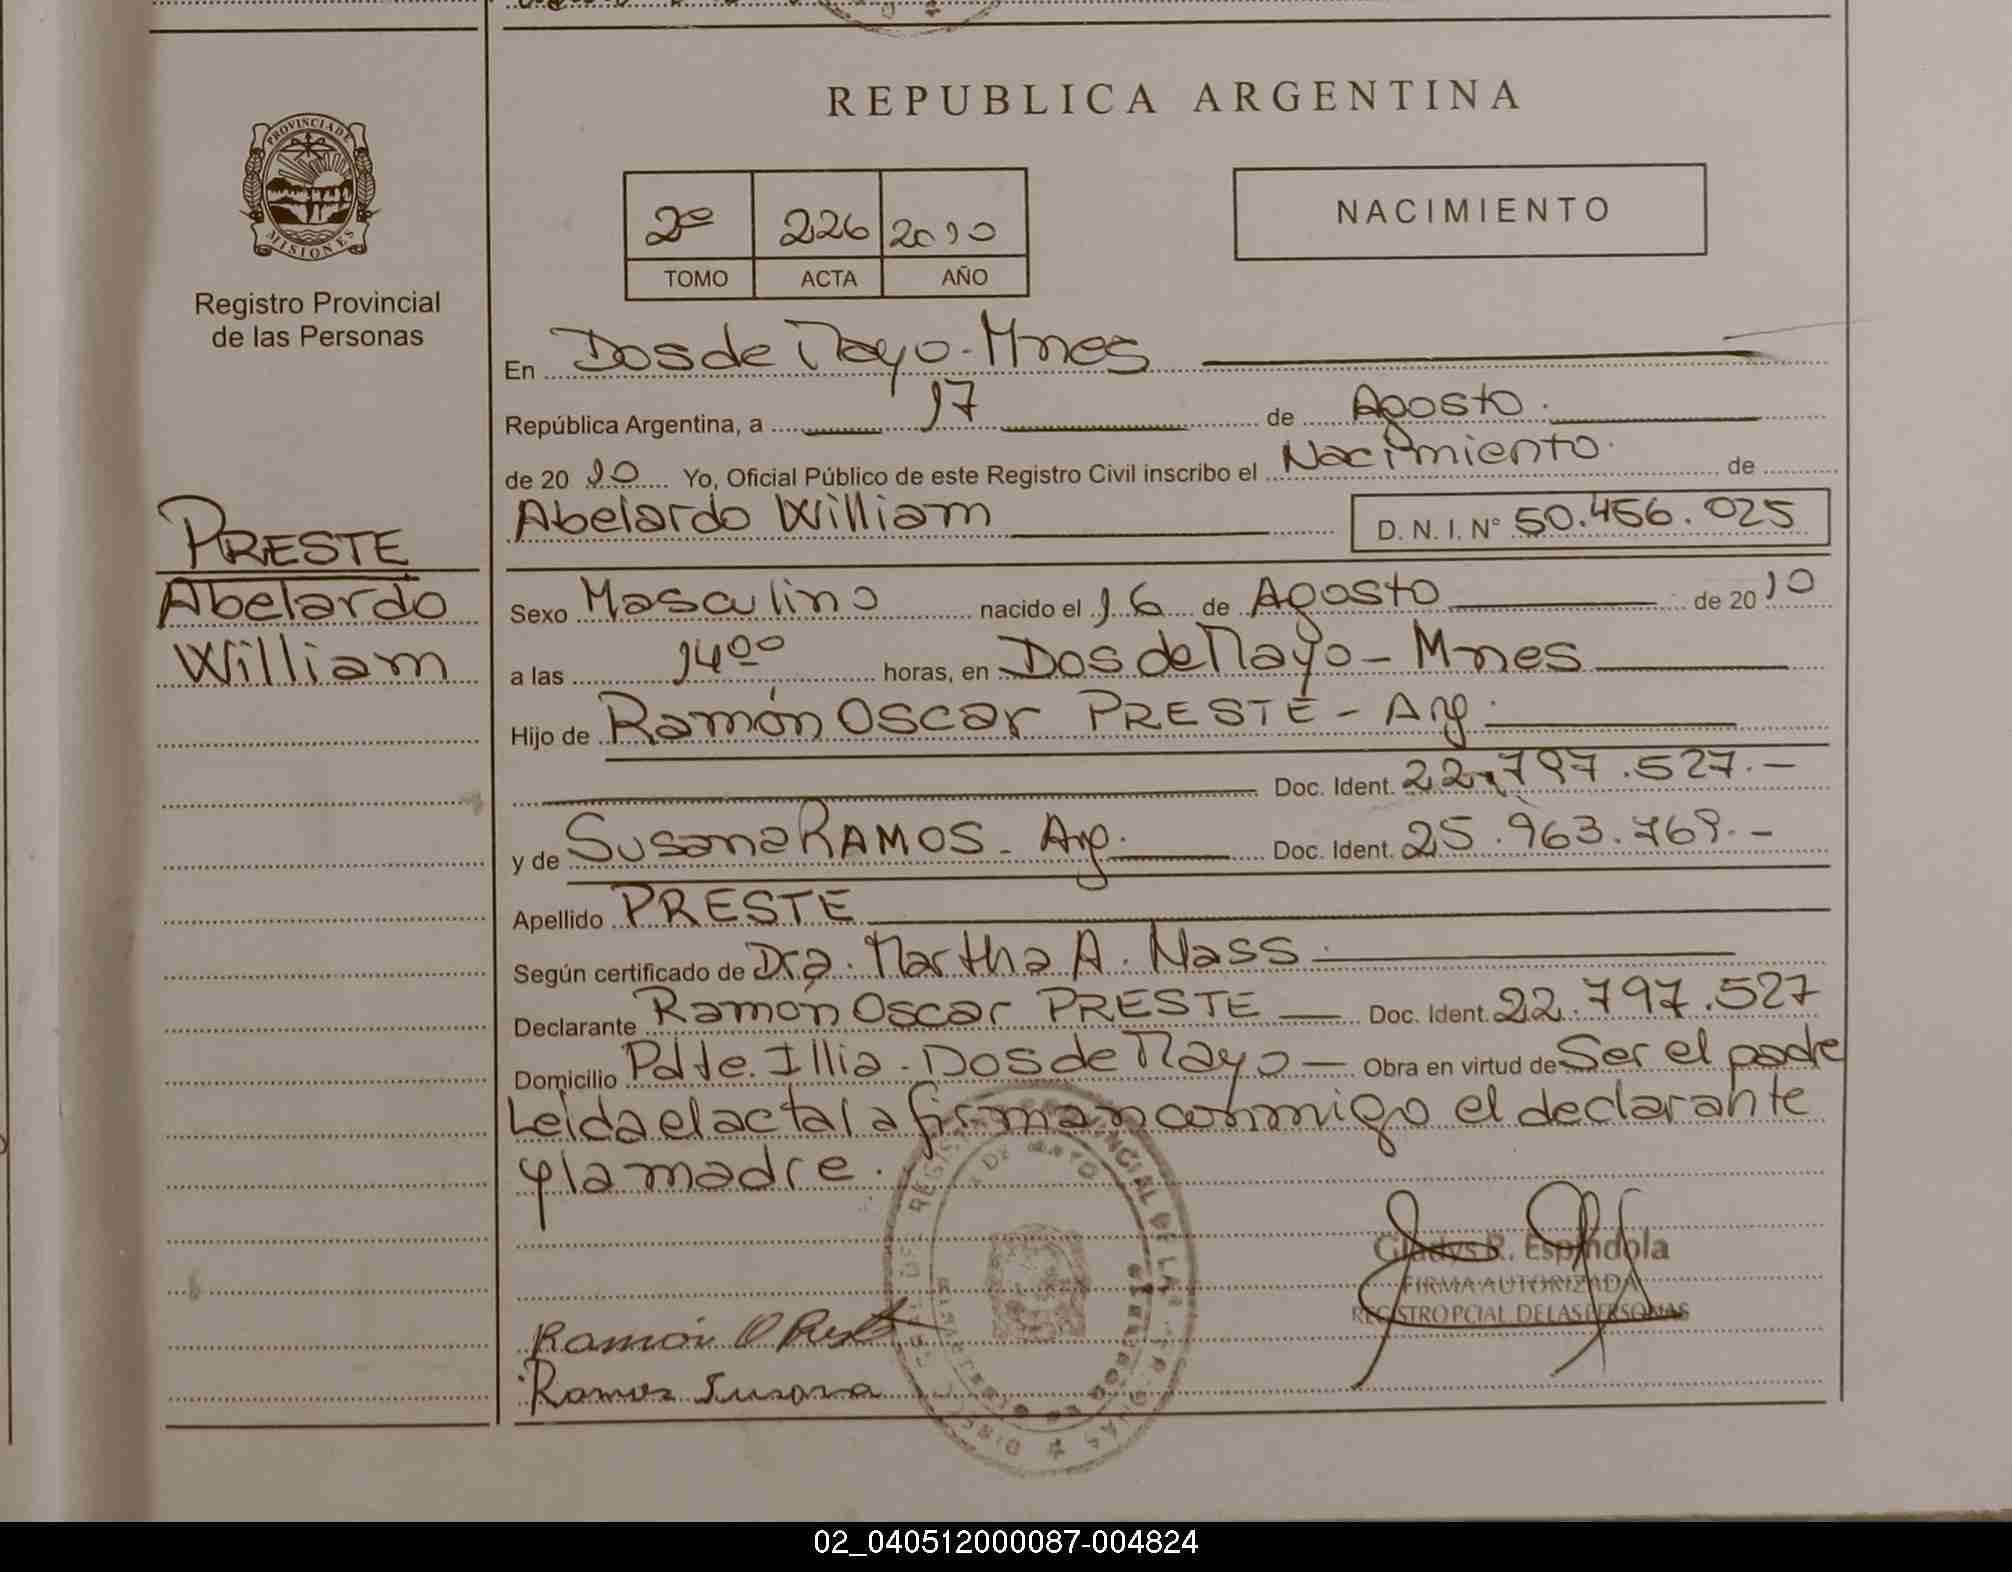 REPUBLICA ARGENTINA
PROVINCIA DE
MISIONES
Registro Provincial
de las Personas
2º 226 2010
TOMO ACTA AÑO
NACIMIENTO
En Dos de Mayo - Mnes
República Argentina, a 17 de Agosto.
de 20 10 Yo, Oficial Público de este Registro Civil inscribo el Nacimiento. de
Abelardo William D. N. I. Nº 50.456.025
PRESTE
Abelardo
William
Sexo Masculino nacido el 16 de Agosto de 20 10
a las 14 00 horas, en Dos de Mayo - Mnes
Hijo de Ramón Oscar PRESTE - Arg.
Doc. Ident. 22.797.527.-
y de Susana RAMOS - Arg. Doc. Ident. 25.963.769.-
Apellido PRESTE
Según certificado de Dra. Martha A. Nass
Declarante Ramón Oscar PRESTE Doc. Ident. 22.797.527
Domicilio Pdte. Illia - Dos de Mayo Obra en virtud de Ser el padre
Leida el acta la firman conmigo el declarante
y la madre.
2 DE MAYO
Gladys R. Espindola
FIRMA AUTORIZADA
REGISTRO PCIAL DE LAS PERSONAS
Ramón O
Ramos Susana
02_040512000087-004824